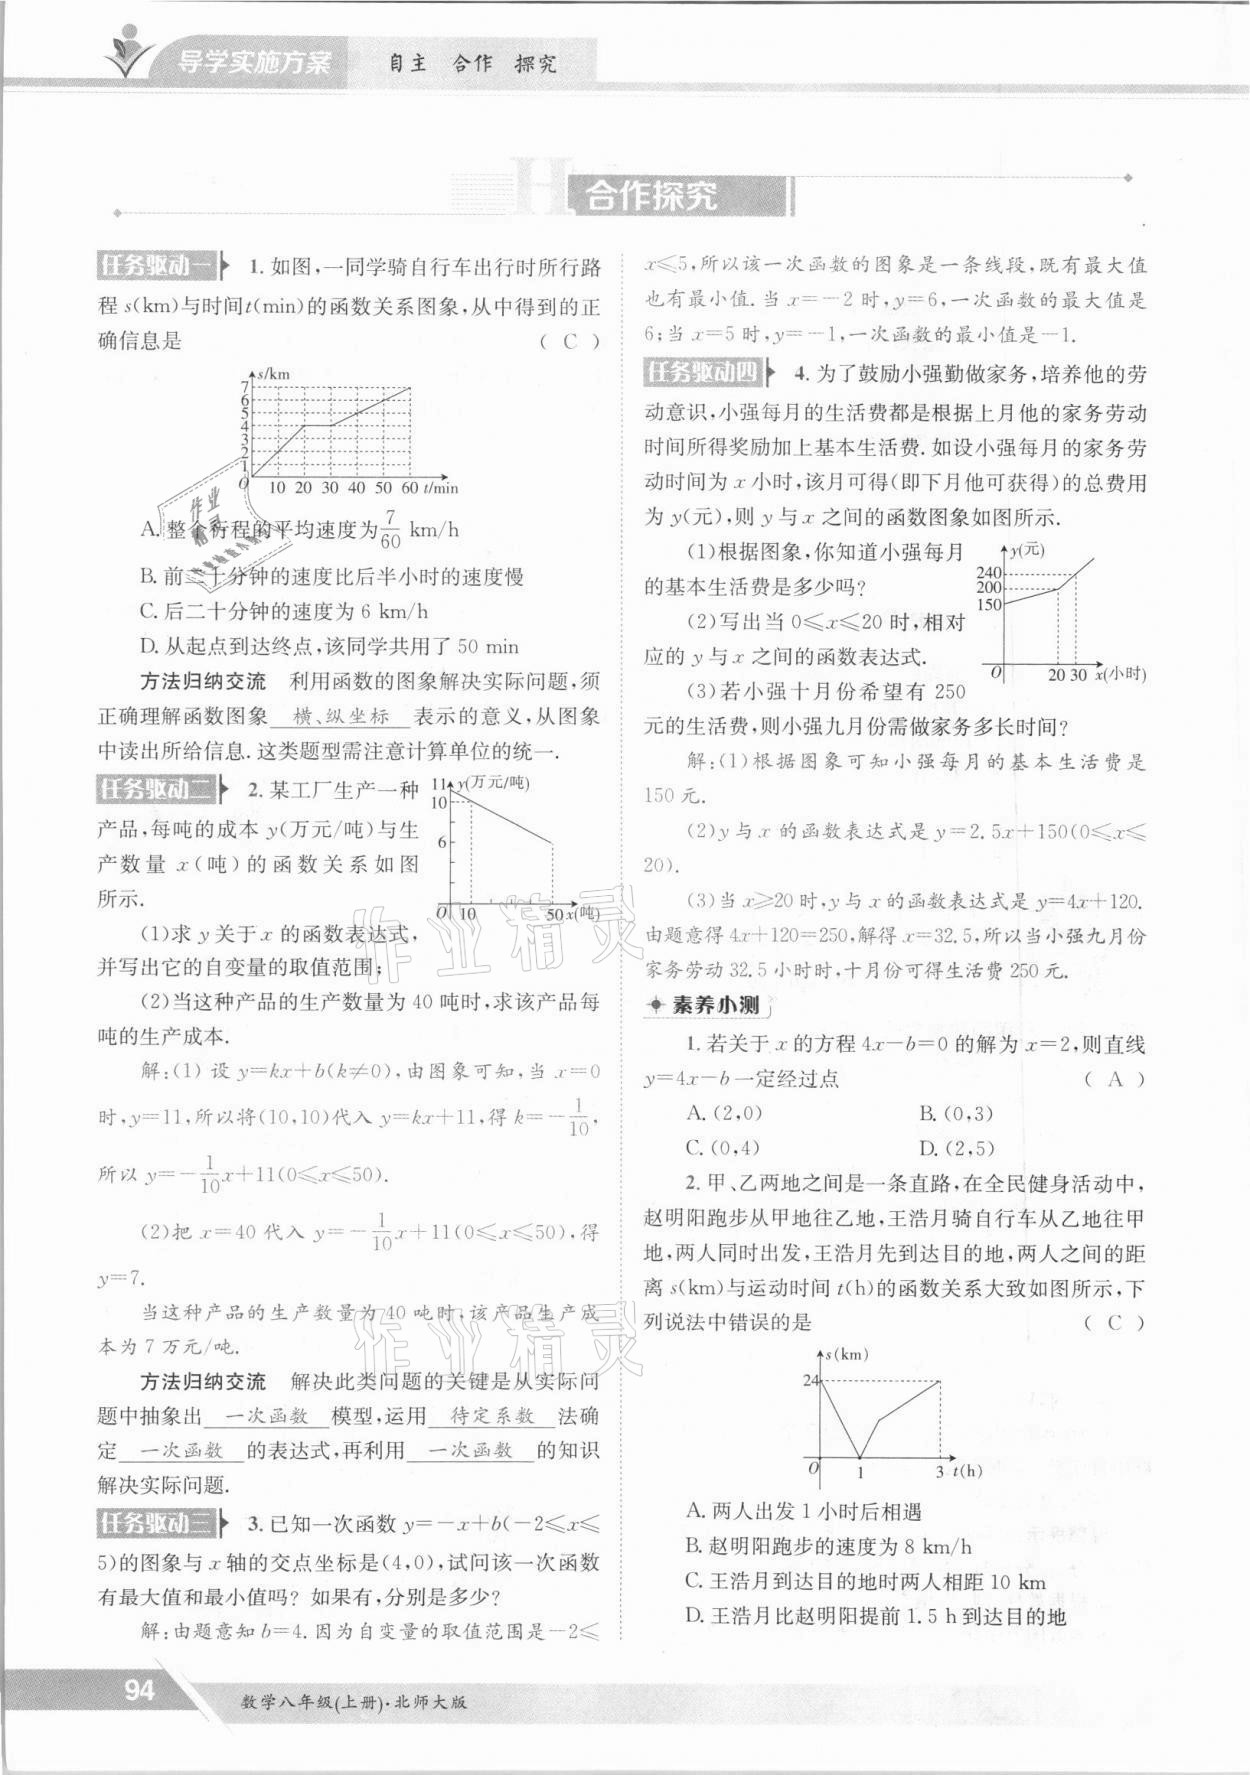 导学实施方案 自主 合作 探究
H 合作探究
任务驱动一 1. 如图,一同学骑自行车出行时所行路
程 s(km)与时间t(min)的函数关系图象,从中得到的正
确信息是 ( C )
s/km
7
6
5
4
3
2
1
O 10 20 30 40 50 60 t/min
A. 整个行程的平均速度为7/60 km/h
B. 前二十分钟的速度比后半小时的速度慢
C. 后二十分钟的速度为 6 km/h
D. 从起点到达终点,该同学共用了 50 min
方法归纳交流 利用函数的图象解决实际问题,须
正确理解函数图象 横、纵坐标 表示的意义,从图象
中读出所给信息. 这类题型需注意计算单位的统一.
任务驱动二 2. 某工厂生产一种
产品,每吨的成本 y(万元/吨)与生
产数量 x(吨)的函数关系如图
所示.
y(万元/吨)
11
10
6
O 10 50 x(吨)
(1)求 y 关于 x 的函数表达式,
并写出它的自变量的取值范围;
(2)当这种产品的生产数量为 40 吨时,求该产品每
吨的生产成本.
解:(1) 设 y=kx+b(k≠0),由图象可知,当 x=0
时,y=11,所以将(10,10)代入 y=kx+11,得 k=-1/10,
所以 y=-1/10x+11(0≤x≤50).
(2)把 x=40 代入 y=-1/10x+11(0≤x≤50),得
y=7.
当这种产品的生产数量为 40 吨时,该产品生产成
本为 7 万元/吨.
方法归纳交流 解决此类问题的关键是从实际问
题中抽象出 一次函数 模型,运用 待定系数 法确
定 一次函数 的表达式,再利用 一次函数 的知识
解决实际问题.
任务驱动三 3. 已知一次函数 y=-x+b(-2≤x≤
5)的图象与 x 轴的交点坐标是(4,0),试问该一次函数
有最大值和最小值吗? 如果有,分别是多少?
解:由题意知 b=4. 因为自变量的取值范围是-2≤
x≤5,所以该一次函数的图象是一条线段,既有最大值
也有最小值. 当 x=-2 时,y=6,一次函数的最大值是
6;当 x=5 时,y=-1,一次函数的最小值是-1.
任务驱动四 4. 为了鼓励小强勤做家务,培养他的劳
动意识,小强每月的生活费都是根据上月他的家务劳动
时间所得奖励加上基本生活费. 如设小强每月的家务劳
动时间为 x 小时,该月可得(即下月他可获得)的总费用
为 y(元),则 y 与 x 之间的函数图象如图所示.
(1)根据图象,你知道小强每月
的基本生活费是多少吗?
(2)写出当 0≤x≤20 时,相对
应的 y 与 x 之间的函数表达式.
(3)若小强十月份希望有 250
元的生活费,则小强九月份需做家务多长时间?
y(元)
240
200
150
O 20 30 x(小时)
解:(1)根据图象可知小强每月的基本生活费是
150 元.
(2)y 与 x 的函数表达式是 y=2.5x+150(0≤x≤
20).
(3)当 x≥20 时,y 与 x 的函数表达式是 y=4x+120.
由题意得 4x+120=250,解得 x=32.5,所以当小强九月份
家务劳动 32.5 小时时,十月份可得生活费 250 元.
素养小测
1. 若关于 x 的方程 4x-b=0 的解为 x=2,则直线
y=4x-b 一定经过点 ( A )
A. (2,0) B. (0,3)
C. (0,4) D. (2,5)
2. 甲、乙两地之间是一条直路,在全民健身活动中,
赵明阳跑步从甲地往乙地,王浩月骑自行车从乙地往甲
地,两人同时出发,王浩月先到达目的地,两人之间的距
离 s(km)与运动时间 t(h)的函数关系大致如图所示,下
列说法中错误的是 ( C )
s(km)
24
O 1 3 t(h)
A. 两人出发 1 小时后相遇
B. 赵明阳跑步的速度为 8 km/h
C. 王浩月到达目的地时两人相距 10 km
D. 王浩月比赵明阳提前 1.5 h 到达目的地
94 数学八年级(上册)·北师大版
作业精灵
作业精灵
作业精灵